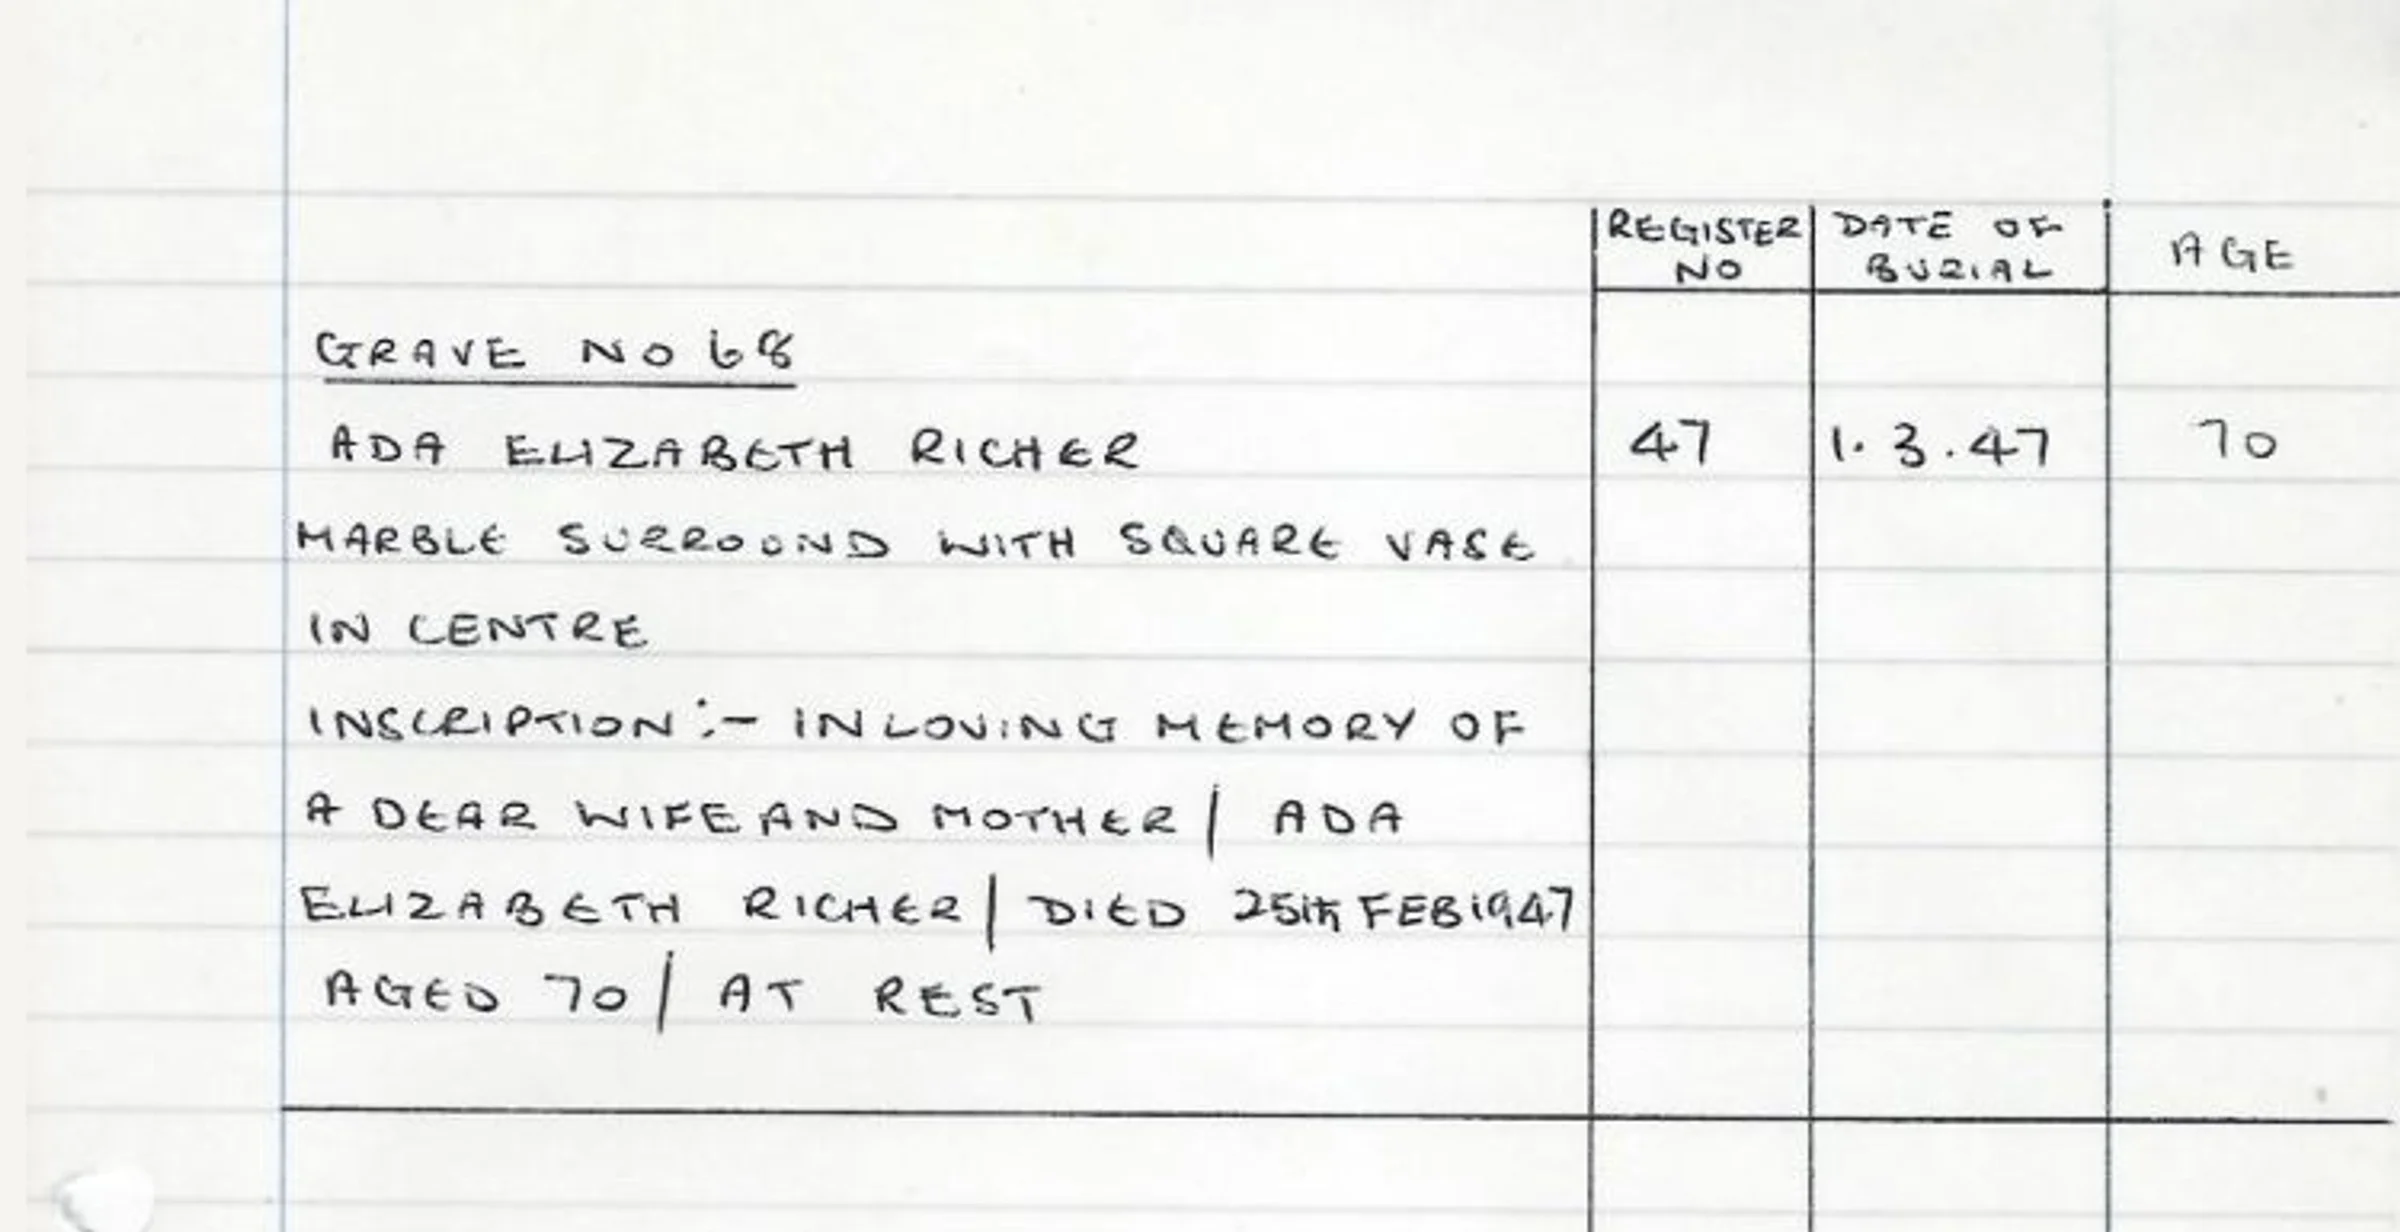 REGISTER NO DATE OF BURIAL AGE
GRAVE NO 68
ADA ELIZABETH RICHER 47 1.3.47 70
MARBLE SURROUND WITH SQUARE VASE
IN CENTRE
INSCRIPTION :- IN LOVING MEMORY OF
A DEAR WIFE AND MOTHER / ADA
ELIZABETH RICHER / DIED 25th FEB 1947
AGED 70 / AT REST